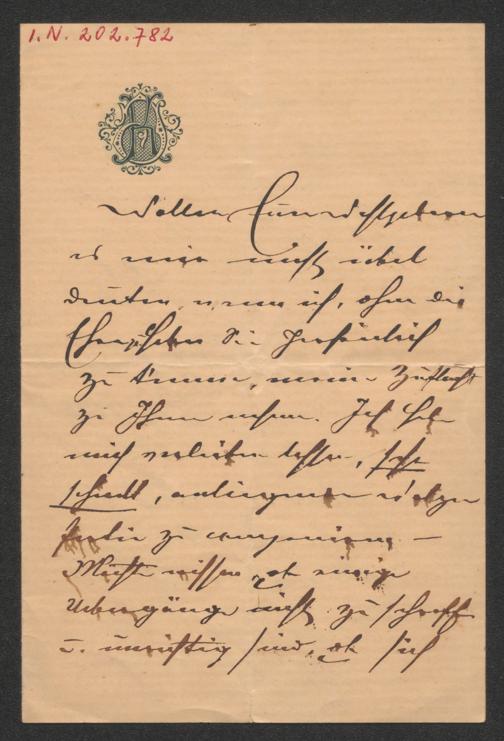 I. N. 202.782
Wollen Euer Wohlgeboren
es mir nicht übel
deuten, wenn ich, ohne die
Ehre zu haben Sie persönlich
zu kennen, meine Zuflucht
zu Ihnen nehme. Ich habe
mich verleiten lassen, sehr
schnell, anliegende
Partie zu componiren –
Möchte wissen, ob einige
Uebergänge nicht zu schroff
u. unrichtig sind, ob sich